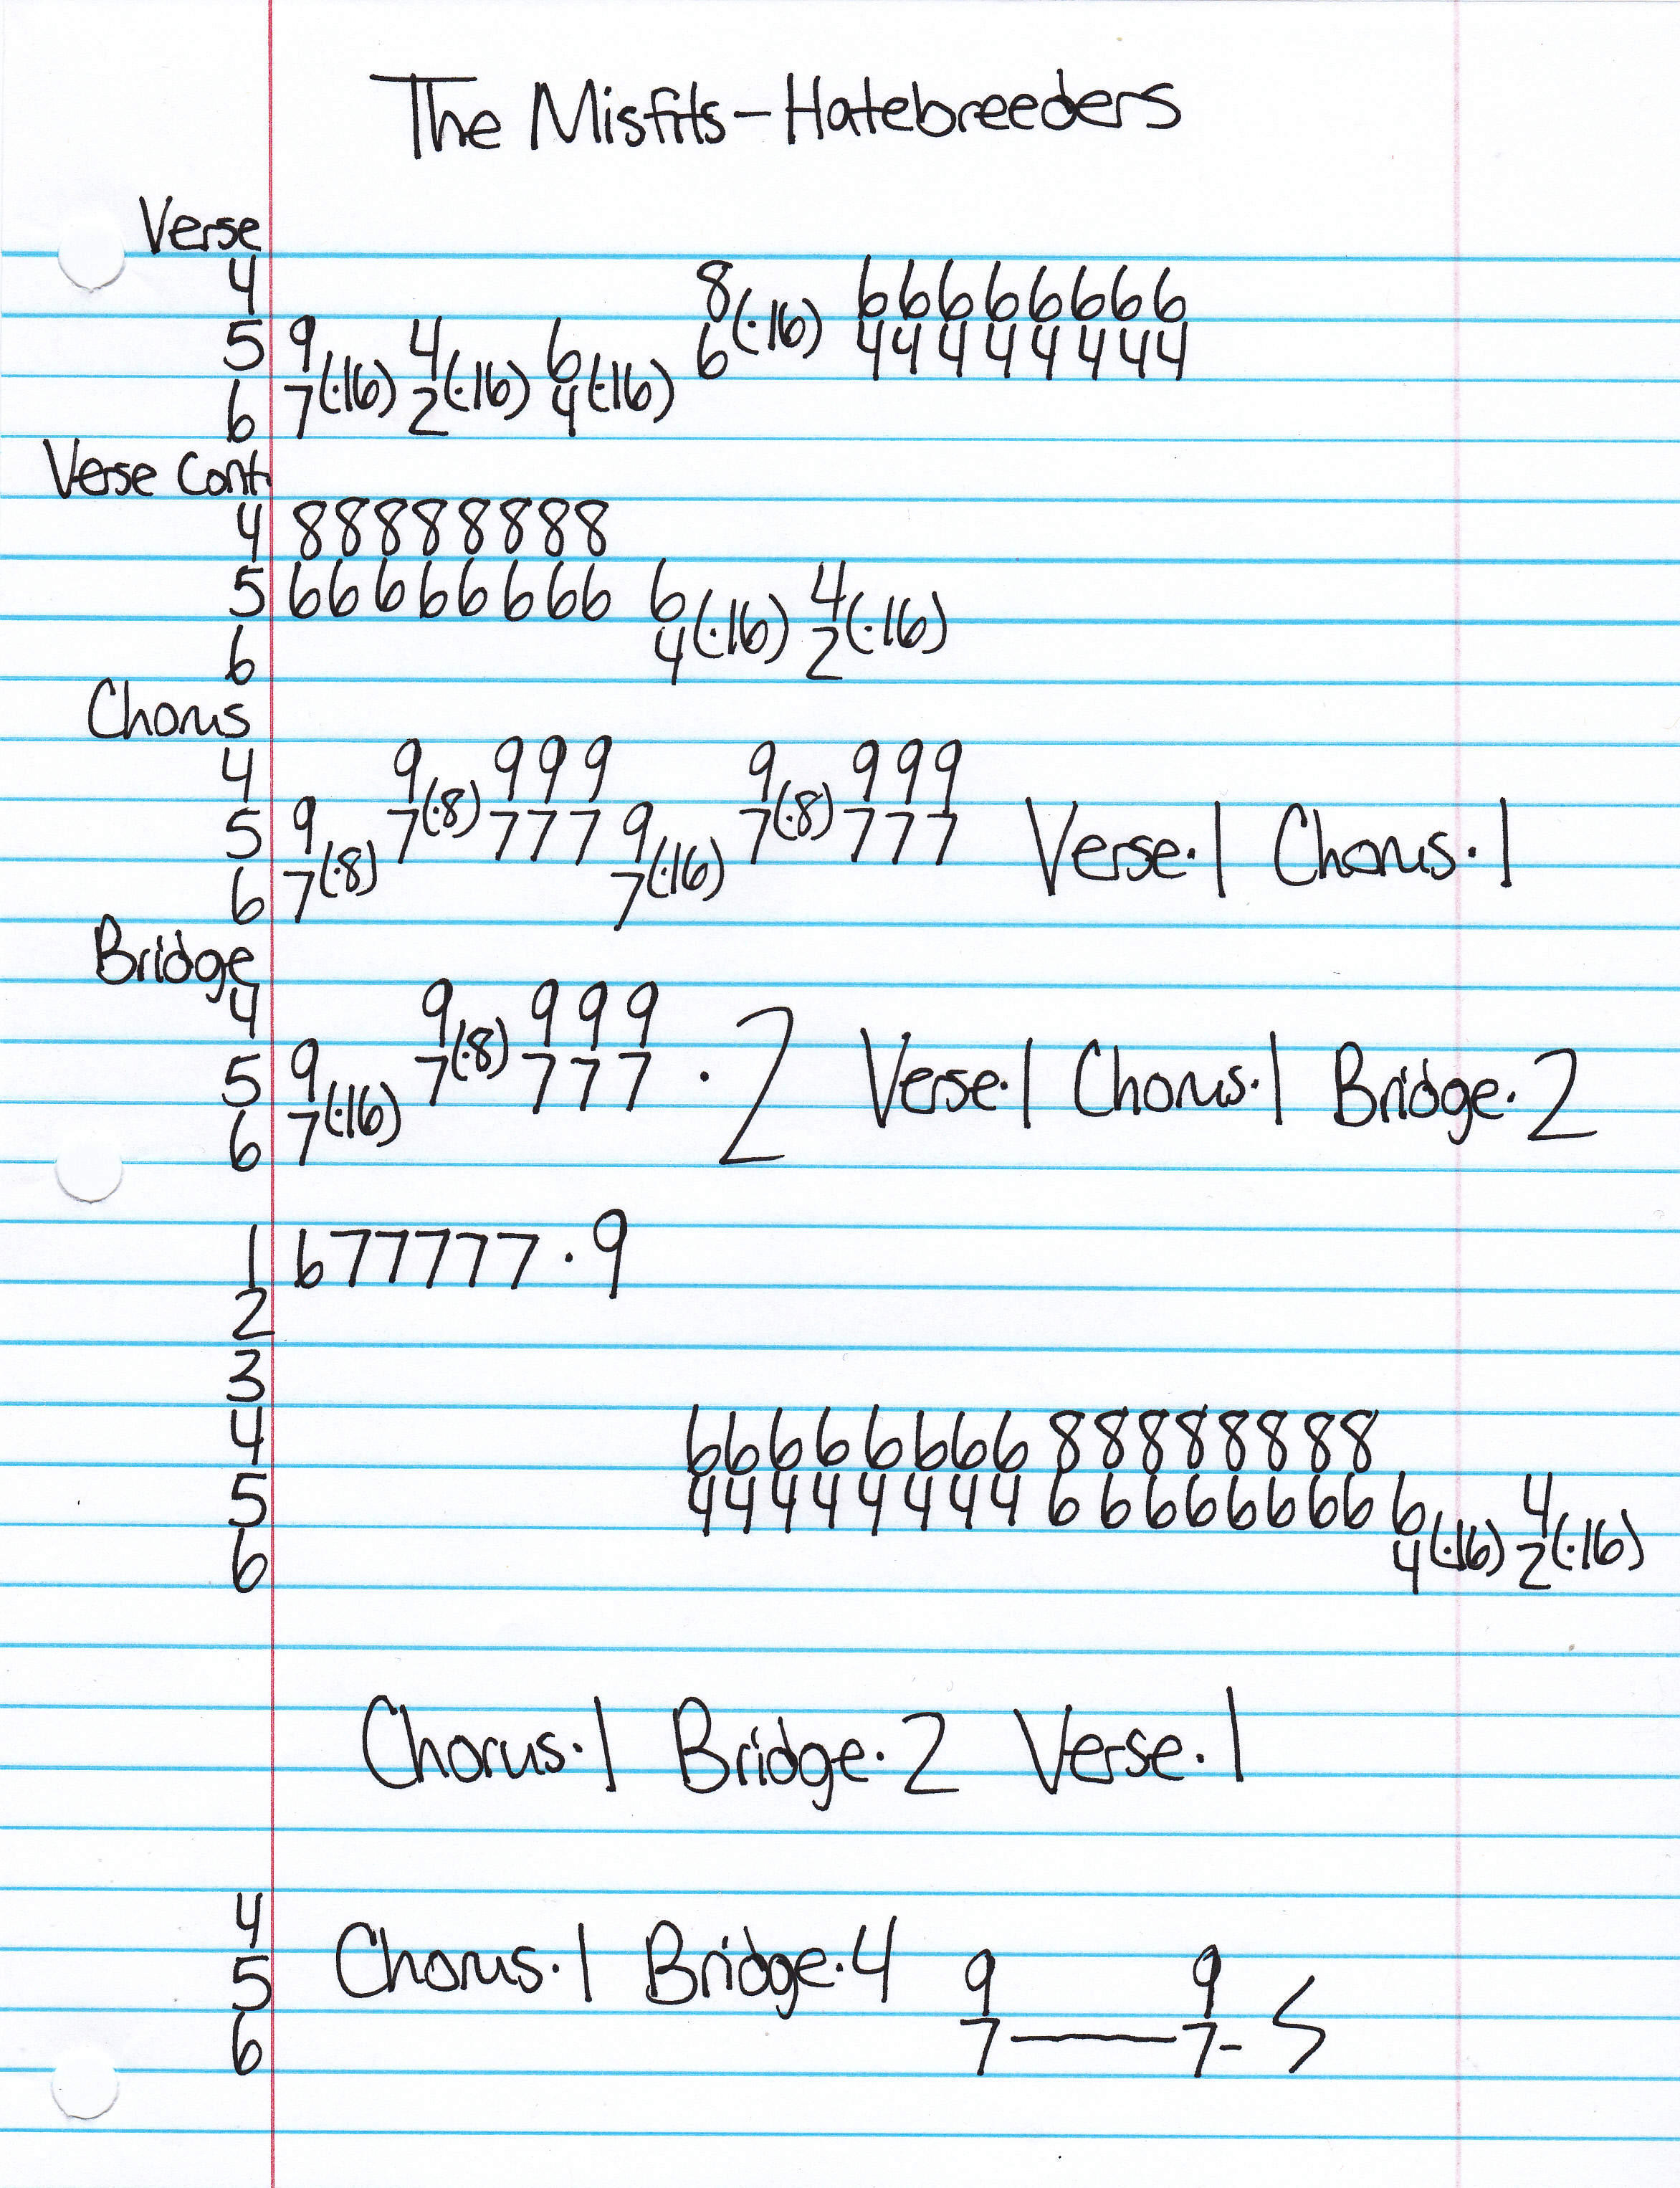 The Misfits - Hatebreeders
Verse
4 8 (·16) 6 6 6 6 6 6 6 6
5 9 4 6 6 4 4 4 4 4 4 4 4
6 7 (·16) 2 (·16) 4 (·16)
Verse Cont.
4 8 8 8 8 8 8 8 8
5 6 6 6 6 6 6 6 6 6 4
6 4 (·16) 2 (·16)
Chorus
4 9 (·8) 9 9 9 9 (·8) 9 9 9
5 9 7 7 7 7 9 7 7 7 7 Verse·1 Chorus·1
6 7 (·8) 7 (·16)
Bridge
4 9 (·8) 9 9 9
5 9 7 7 7 7 ·2 Verse·1 Chorus·1 Bridge·2
6 7 (·16)
1 6 7 7 7 7 7 ·9
2
3
4 6 6 6 6 6 6 6 6 8 8 8 8 8 8 8 8
5 4 4 4 4 4 4 4 4 6 6 6 6 6 6 6 6 6 4
6 4 (·16) 2 (·16)
Chorus·1 Bridge·2 Verse·1
4
5 Chorus·1 Bridge·4 9 9
6 7 — 7 -